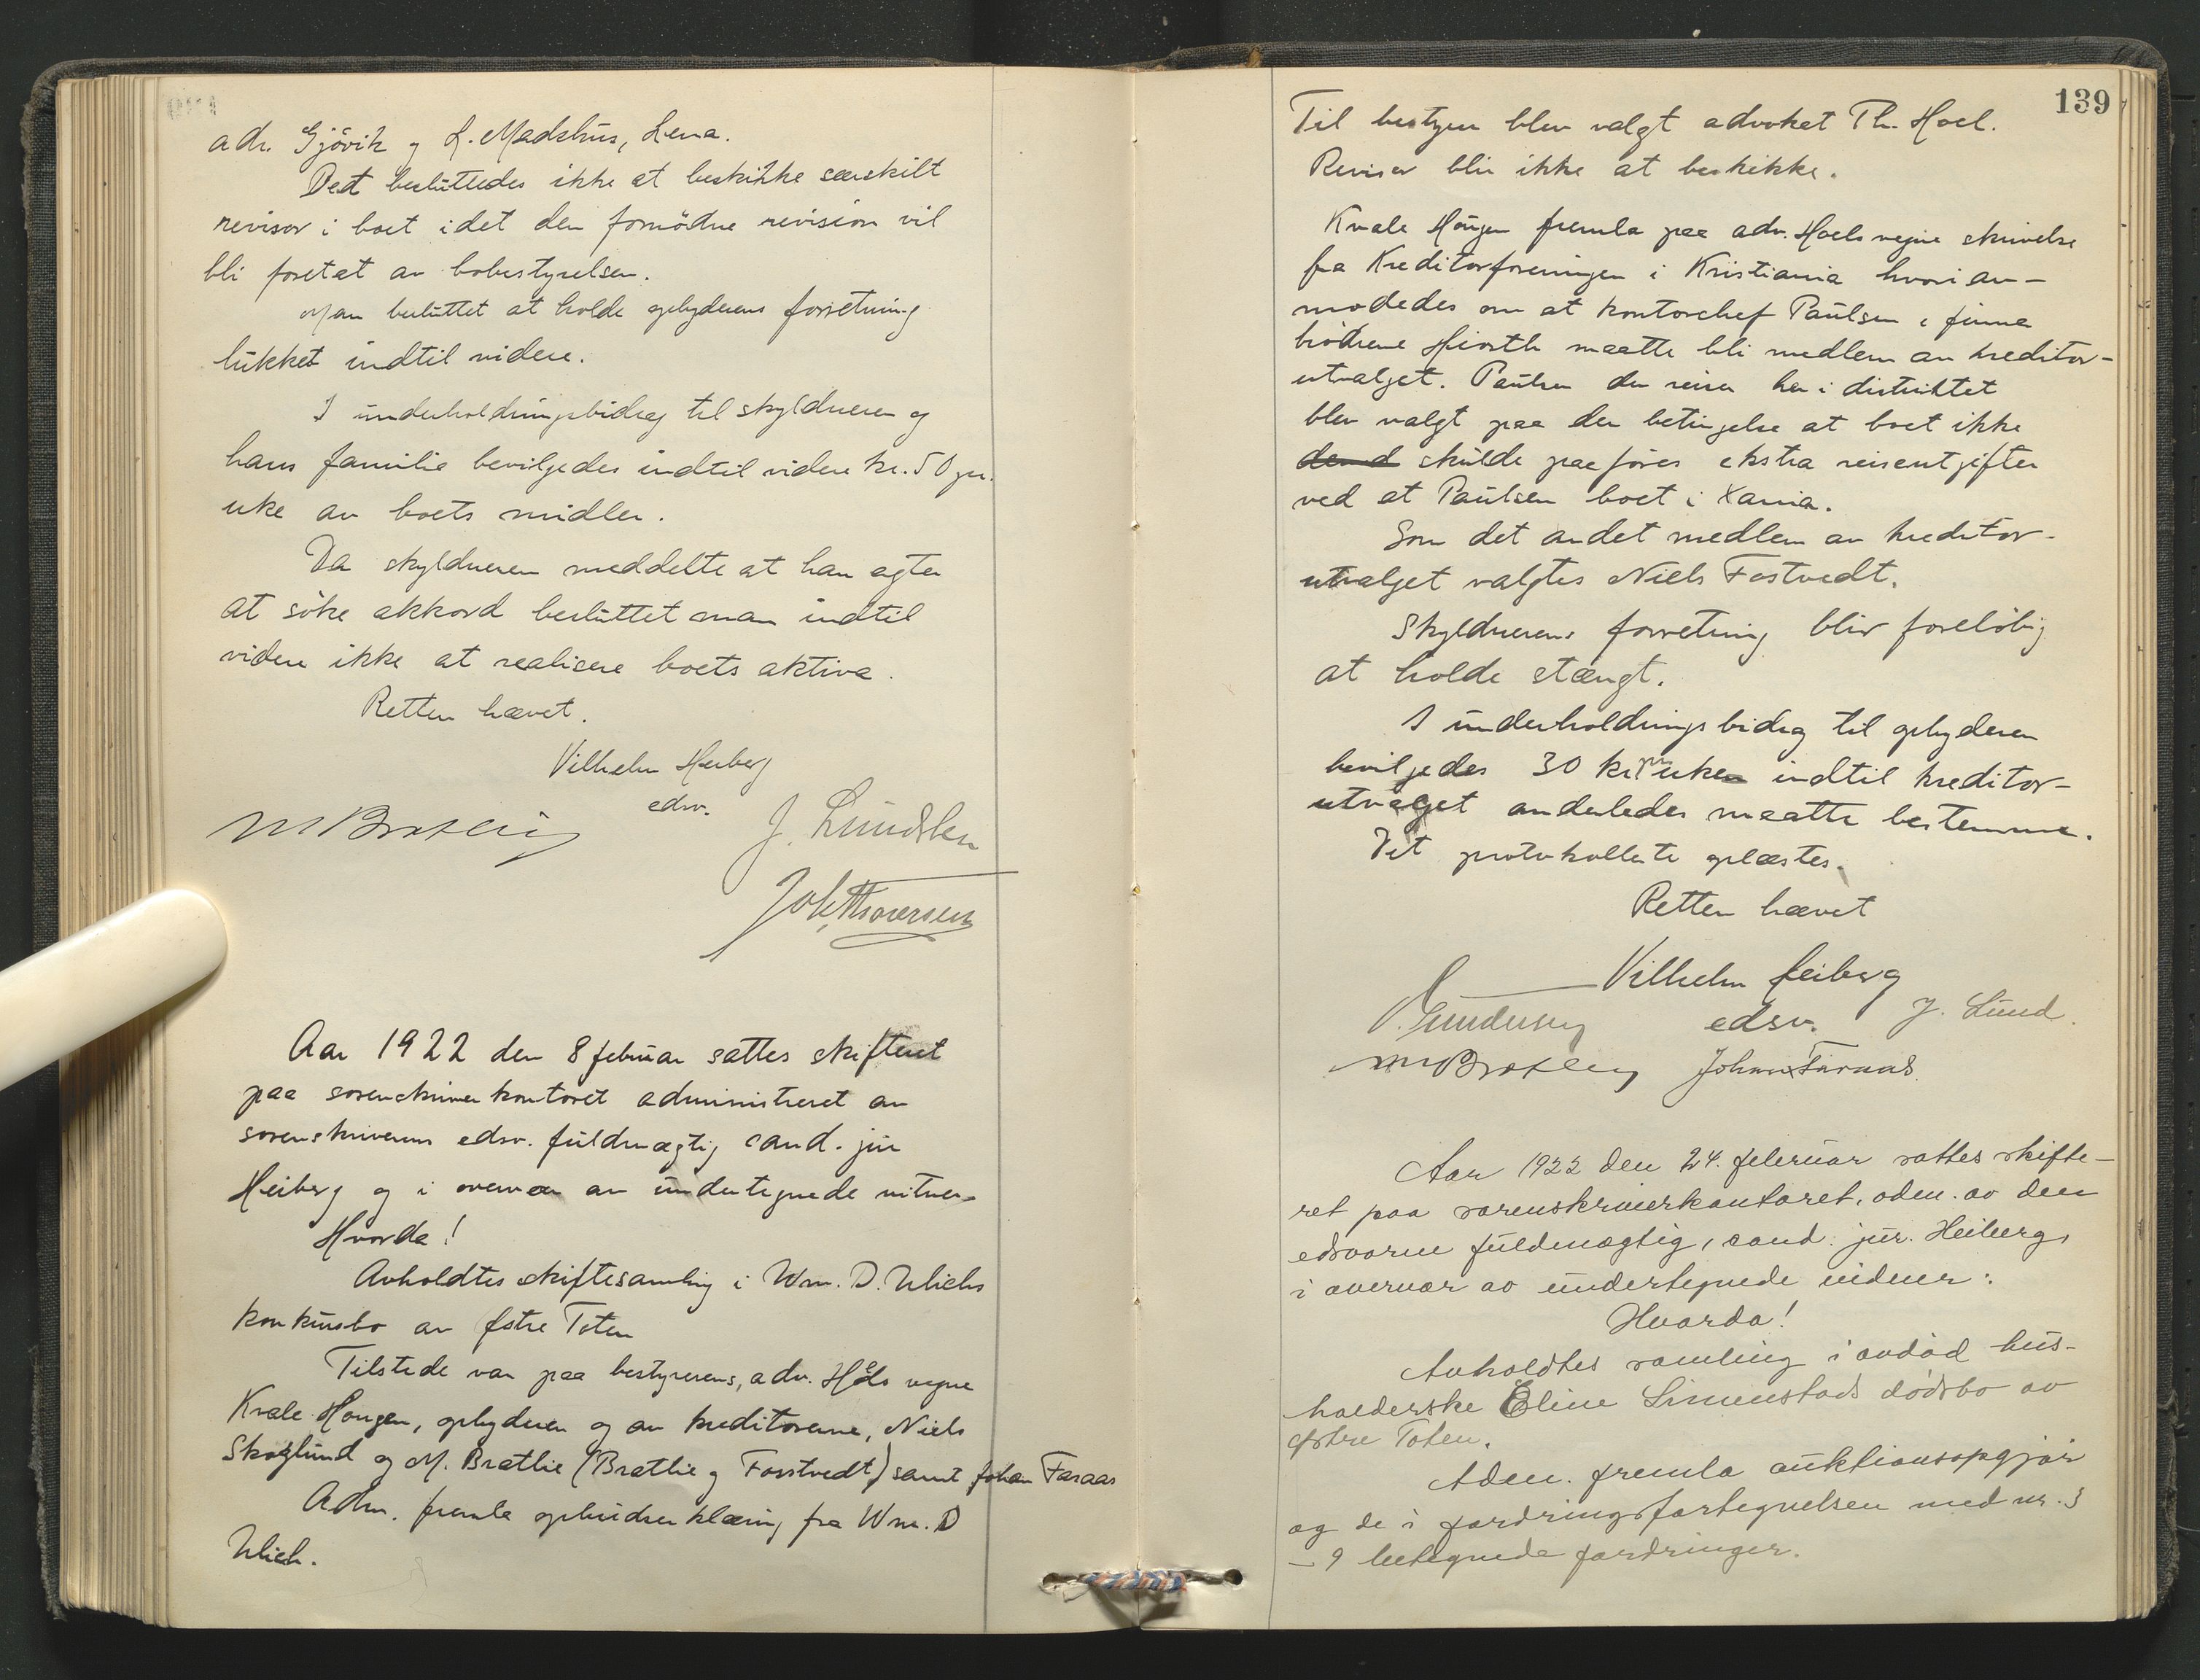 adr. Gjövik og L. Madshus, Lena.
Det besluttedes ikke at beskikke særskilt
revisor i boet idet den fornödne revision vil
bli foretat av bobestyrelsen.
Man besluttet at holde opbyderens forretning
lukket indtil videre.
I underholdningsbidrag til skyldneren og
hans familie bevilgedes indtil videre kr. 50 pr.
uke av boets midler.
Da skyldneren meddelte at han agter
at söke akkord besluttet man indtil
videre ikke at realisere boets aktiva.
Retten hævet.
Vilhelm Heiberg
edsv.
M Bratlie J. Lund
Joh. Thoresen
Aar 1922 den 8 februar sattes skifteret
paa sorenskriverkontoret administreret av
sorenskriverens edsv. fuldmægtig cand. jur
Heiberg og i overvær av undertegnede vitner.
Hvorda!
Avholdtes skiftesamling i Wm. D. Ulichs
konkursbo av Östre Toten
Tilstede var paa bestyrerens, adv. Hoels vegne
Kvale Hougen, opbyderen og av kreditorerne, Niels
Skoglund og M. Bratlie (Bratlie og Fostvedt) samt Johan Faraas
Adm. fremla opbudserklæring fra Wm. D
Ulich.
139
Til bestyrer blev valgt advokat Th. Hoel.
Revisor blir ikke at beskikke.
Kvale Hougen fremla paa adv. Hoels vegne skrivelse
fra Kreditorforeningen i Kristiania hvori an-
modedes om at kontorchef Paulsen i firma
brödrene Hiorth maatte bli medlem av kreditor-
utvalget. Paulsen der reiser her i distriktet
blev valgt paa den betingelse at boet ikke
skulde paaföres ekstra reiseutgifter
ved at Paulsen boet i Xania.
Som det andet medlem av kreditor-
utvalget valgtes Niels Fostvedt.
Skyldnerens forretning blir forelöbig
at holde stængt.
I underholdningsbidrag til opbyderen
bevilgedes 30 kr. pr uke indtil kreditor-
utvalget anderledes maatte bestemme.
Det protokollerte oplæstes.
Retten hævet
Vilhelm Heiberg
Gundersen edsv. J. Lund.
M Bratlie Johan Faraas
Aar 1922 den 24. februar sattes skifte-
ret paa sorenskriverkontoret, adm. av den
edsvorne fuldmægtig, cand. jur. Heiberg,
i overvær av undertegnede vidner:
Hvorda!
Avholdtes samling i avdöd hus-
holderske Eline Limenstads dödsbo av
Östre Toten.
Adm. fremla auktionsopgjör
og de i fordringsfortegnelsen med nr. 3
– 9 betegnede fordringer.